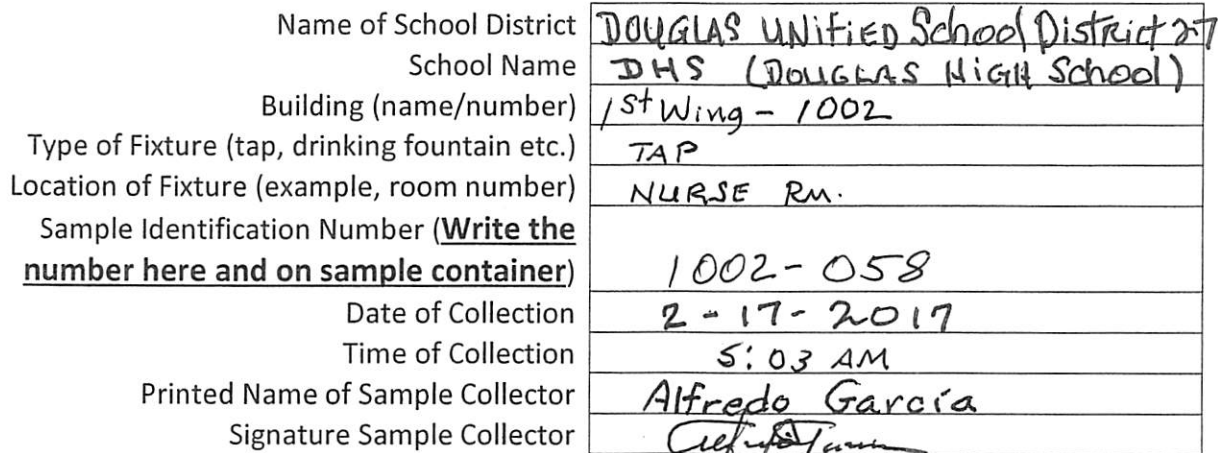 Name of School District DOUGLAS UNIFIED School District 27
School Name DHS (DOUGLAS HIGH School)
Building (name/number) 1st Wing - 1002
Type of Fixture (tap, drinking fountain etc.) TAP
Location of Fixture (example, room number) NURSE RM.
Sample Identification Number (Write the
number here and on sample container) 1002-058
Date of Collection 2-17-2017
Time of Collection 5:03 AM
Printed Name of Sample Collector Alfredo García
Signature Sample Collector